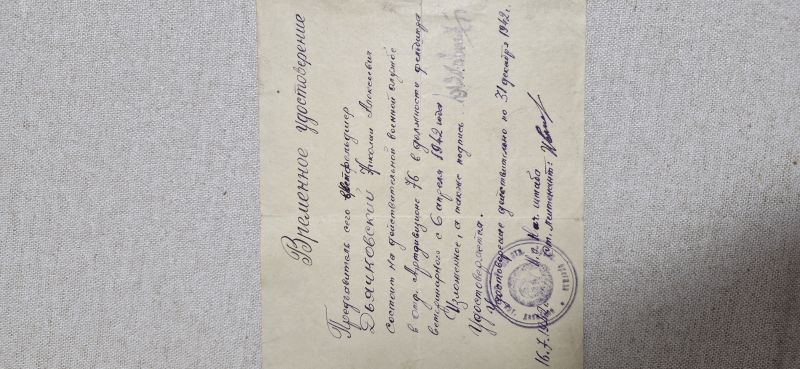 Временное удостоверение
Предъявитель сего ветфельдшер
Дьячковский Николай Алексеевич
состоит на действительной военной службе
в отд. Артдивизионе 76 в должности фельдшера
ветеринарного с 6 апреля 1942 года
Изложенное, а также подпись
Удостоверяется.
Удостоверение действительно по 31 декабря 1942г.
Нач. штаба
Ст. лейтенант:
16.7.1942г.